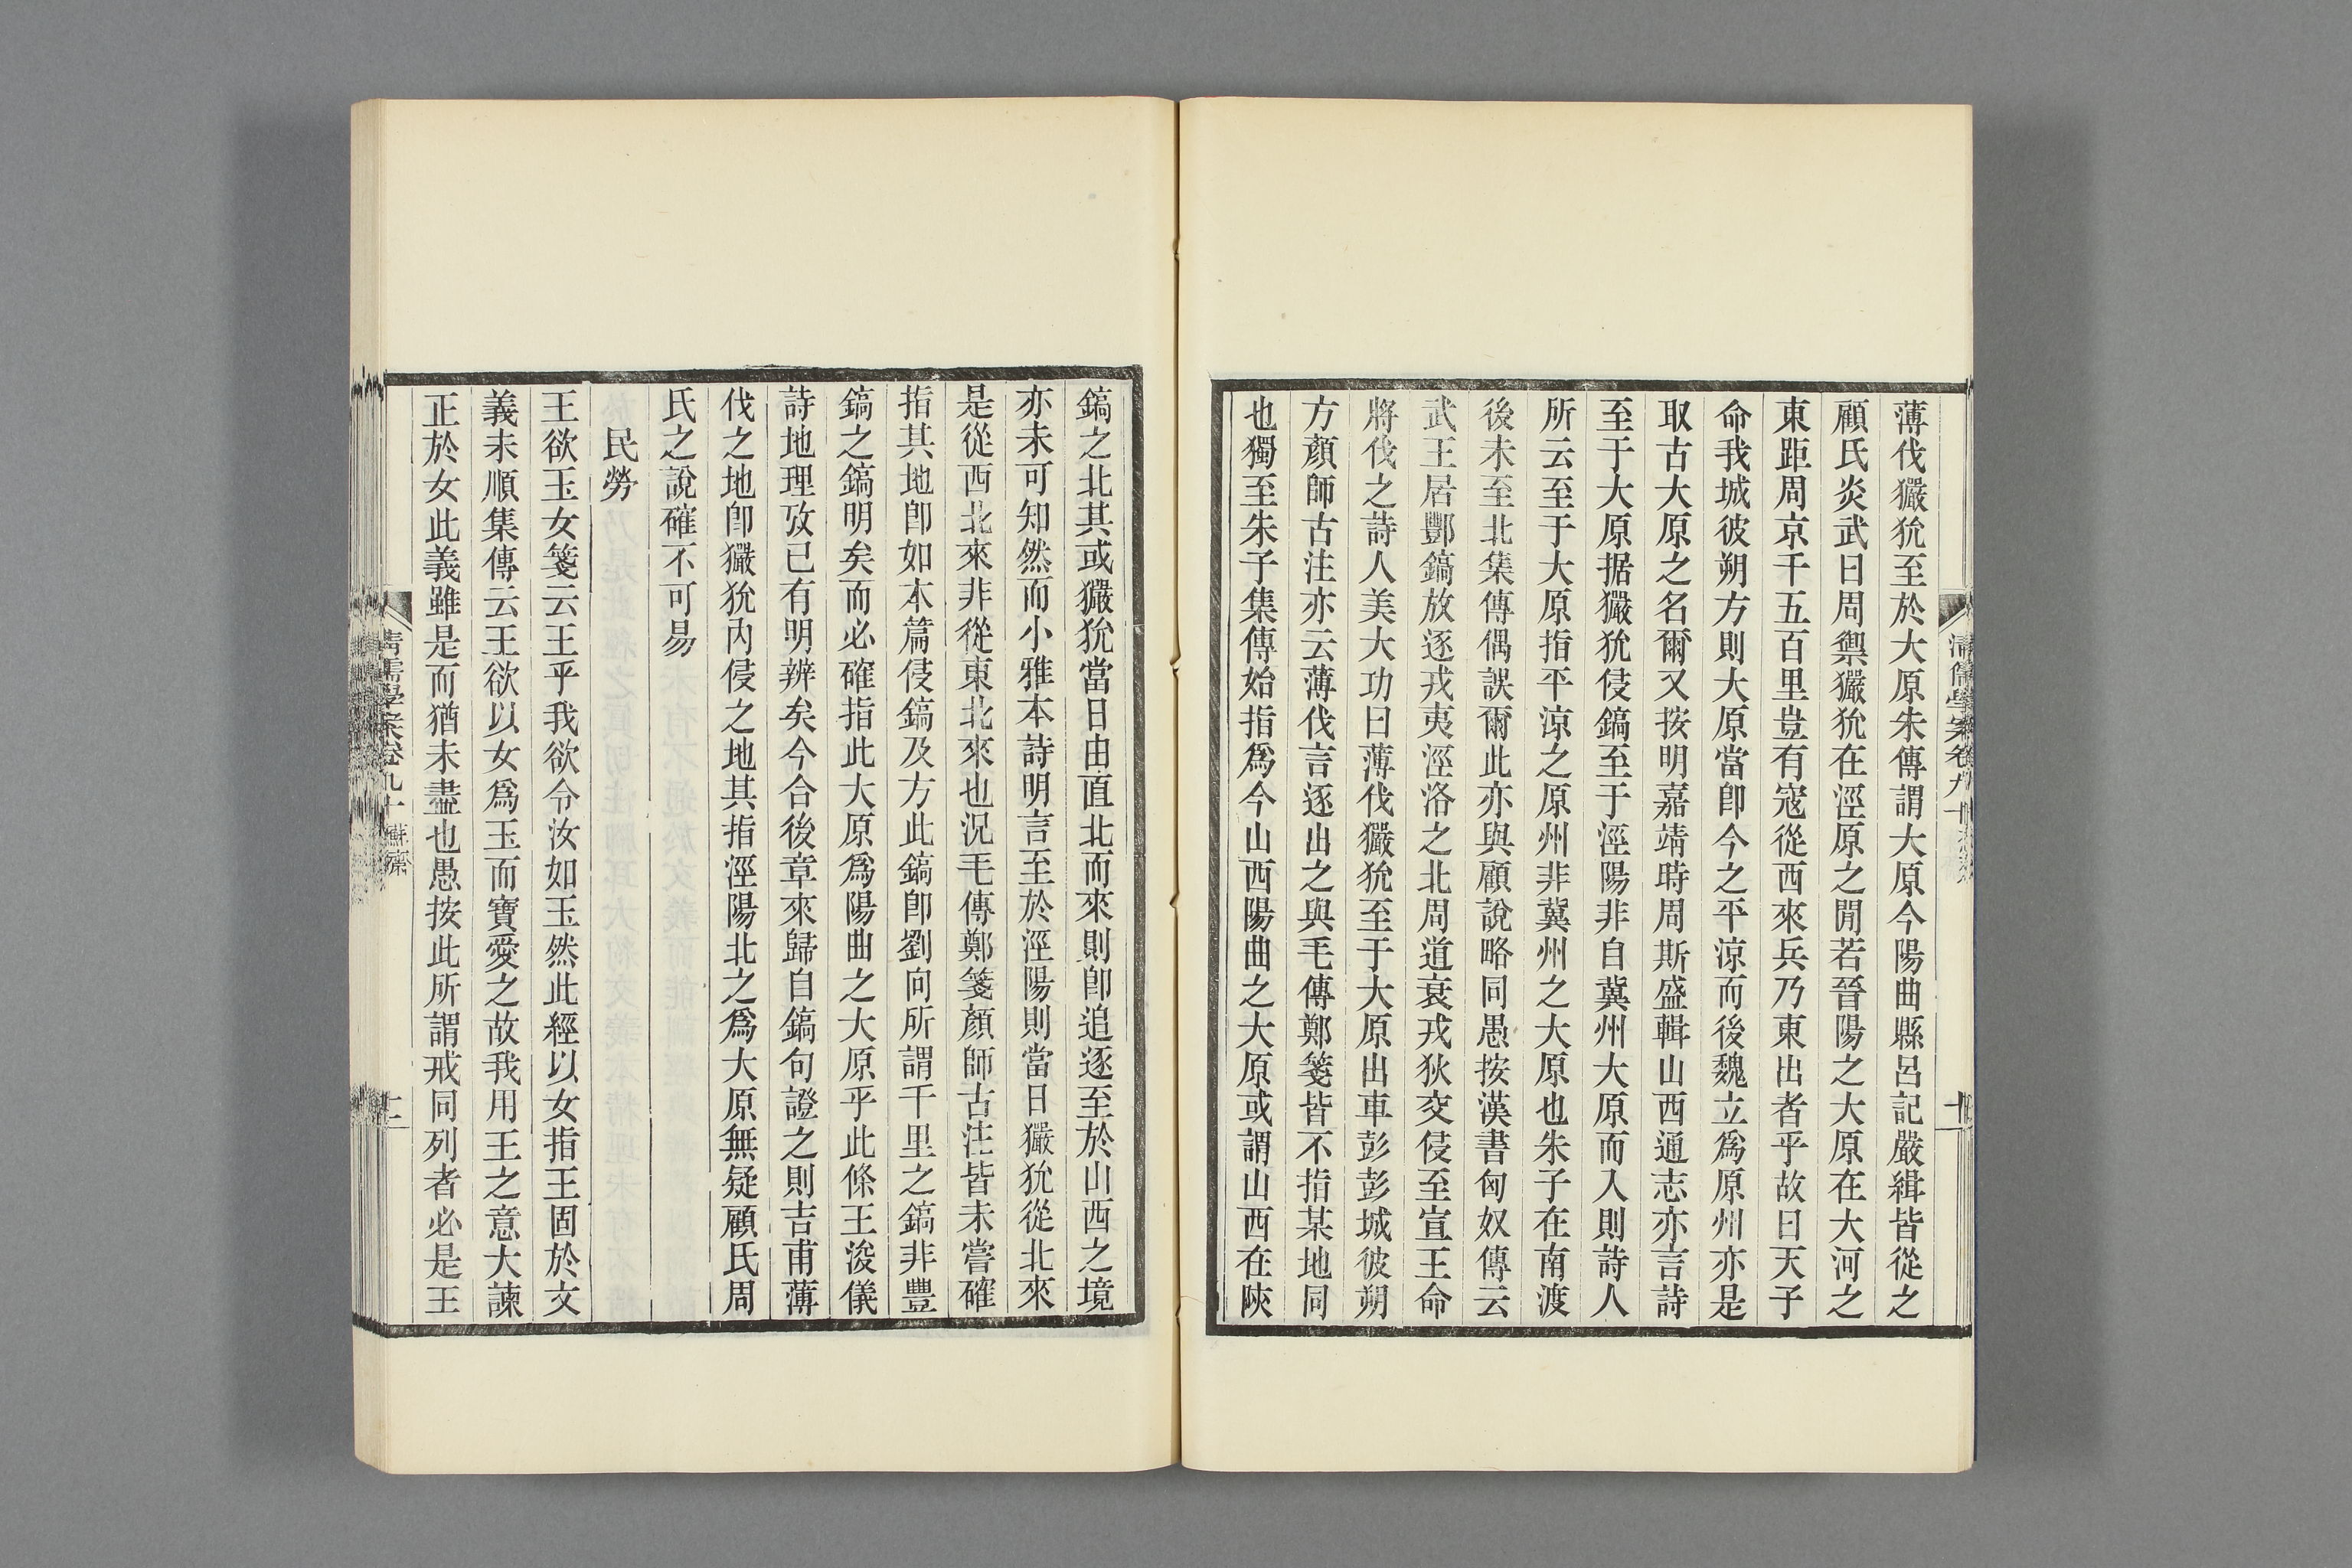 薄伐玁狁至於大原朱傳謂大原今陽曲縣呂記嚴緝皆從之
顧氏炎武曰周禦玁狁在涇原之閒若晉陽之大原在大河之
東距周京千五百里豈有寇從西來兵乃東出者乎故曰天子
命我城彼朔方則大原當卽今之平涼而後魏立爲原州亦是
取古大原之名爾又按明嘉靖時周斯盛輯山西通志亦言詩
至于大原据玁狁侵鎬至于涇陽非自冀州大原而入則詩人
所云至于大原指平涼之原州非冀州之大原也朱子在南渡
後未至北集傳偶誤爾此亦與顧說略同愚按漢書匈奴傳云
武王居酆鎬放逐戎夷涇洛之北周道衰戎狄交侵至宣王命
將伐之詩人美大功曰薄伐玁狁至于大原出車彭彭城彼朔
方顏師古注亦云薄伐言逐出之與毛傳鄭箋皆不指某地同
也獨至朱子集傳始指爲今山西陽曲之大原或謂山西在陝
鎬之北其或玁狁當日由直北而來則卽追逐至於山西之境
亦未可知然而小雅本詩明言至於涇陽則當日玁狁從北來
是從西北來非從東北來也況毛傳鄭箋顏師古注皆未嘗確
指其地卽如本篇侵鎬及方此鎬卽劉向所謂千里之鎬非豐
鎬之鎬明矣而必確指此大原爲陽曲之大原乎此條王浚儀
詩地理攷已有明辨矣今合後章來歸自鎬句證之則吉甫薄
伐之地卽玁狁內侵之地其指涇陽北之爲大原無疑顧氏周
氏之說確不可易
民勞
王欲玉女箋云王乎我欲令汝如玉然此經以女指王固於文
義未順集傳云王欲以女爲玉而寶愛之故我用王之意大諫
正於女此義雖是而猶未盡也愚按此所謂戒同列者必是王
清儒學案卷九十 蘇齋
十二